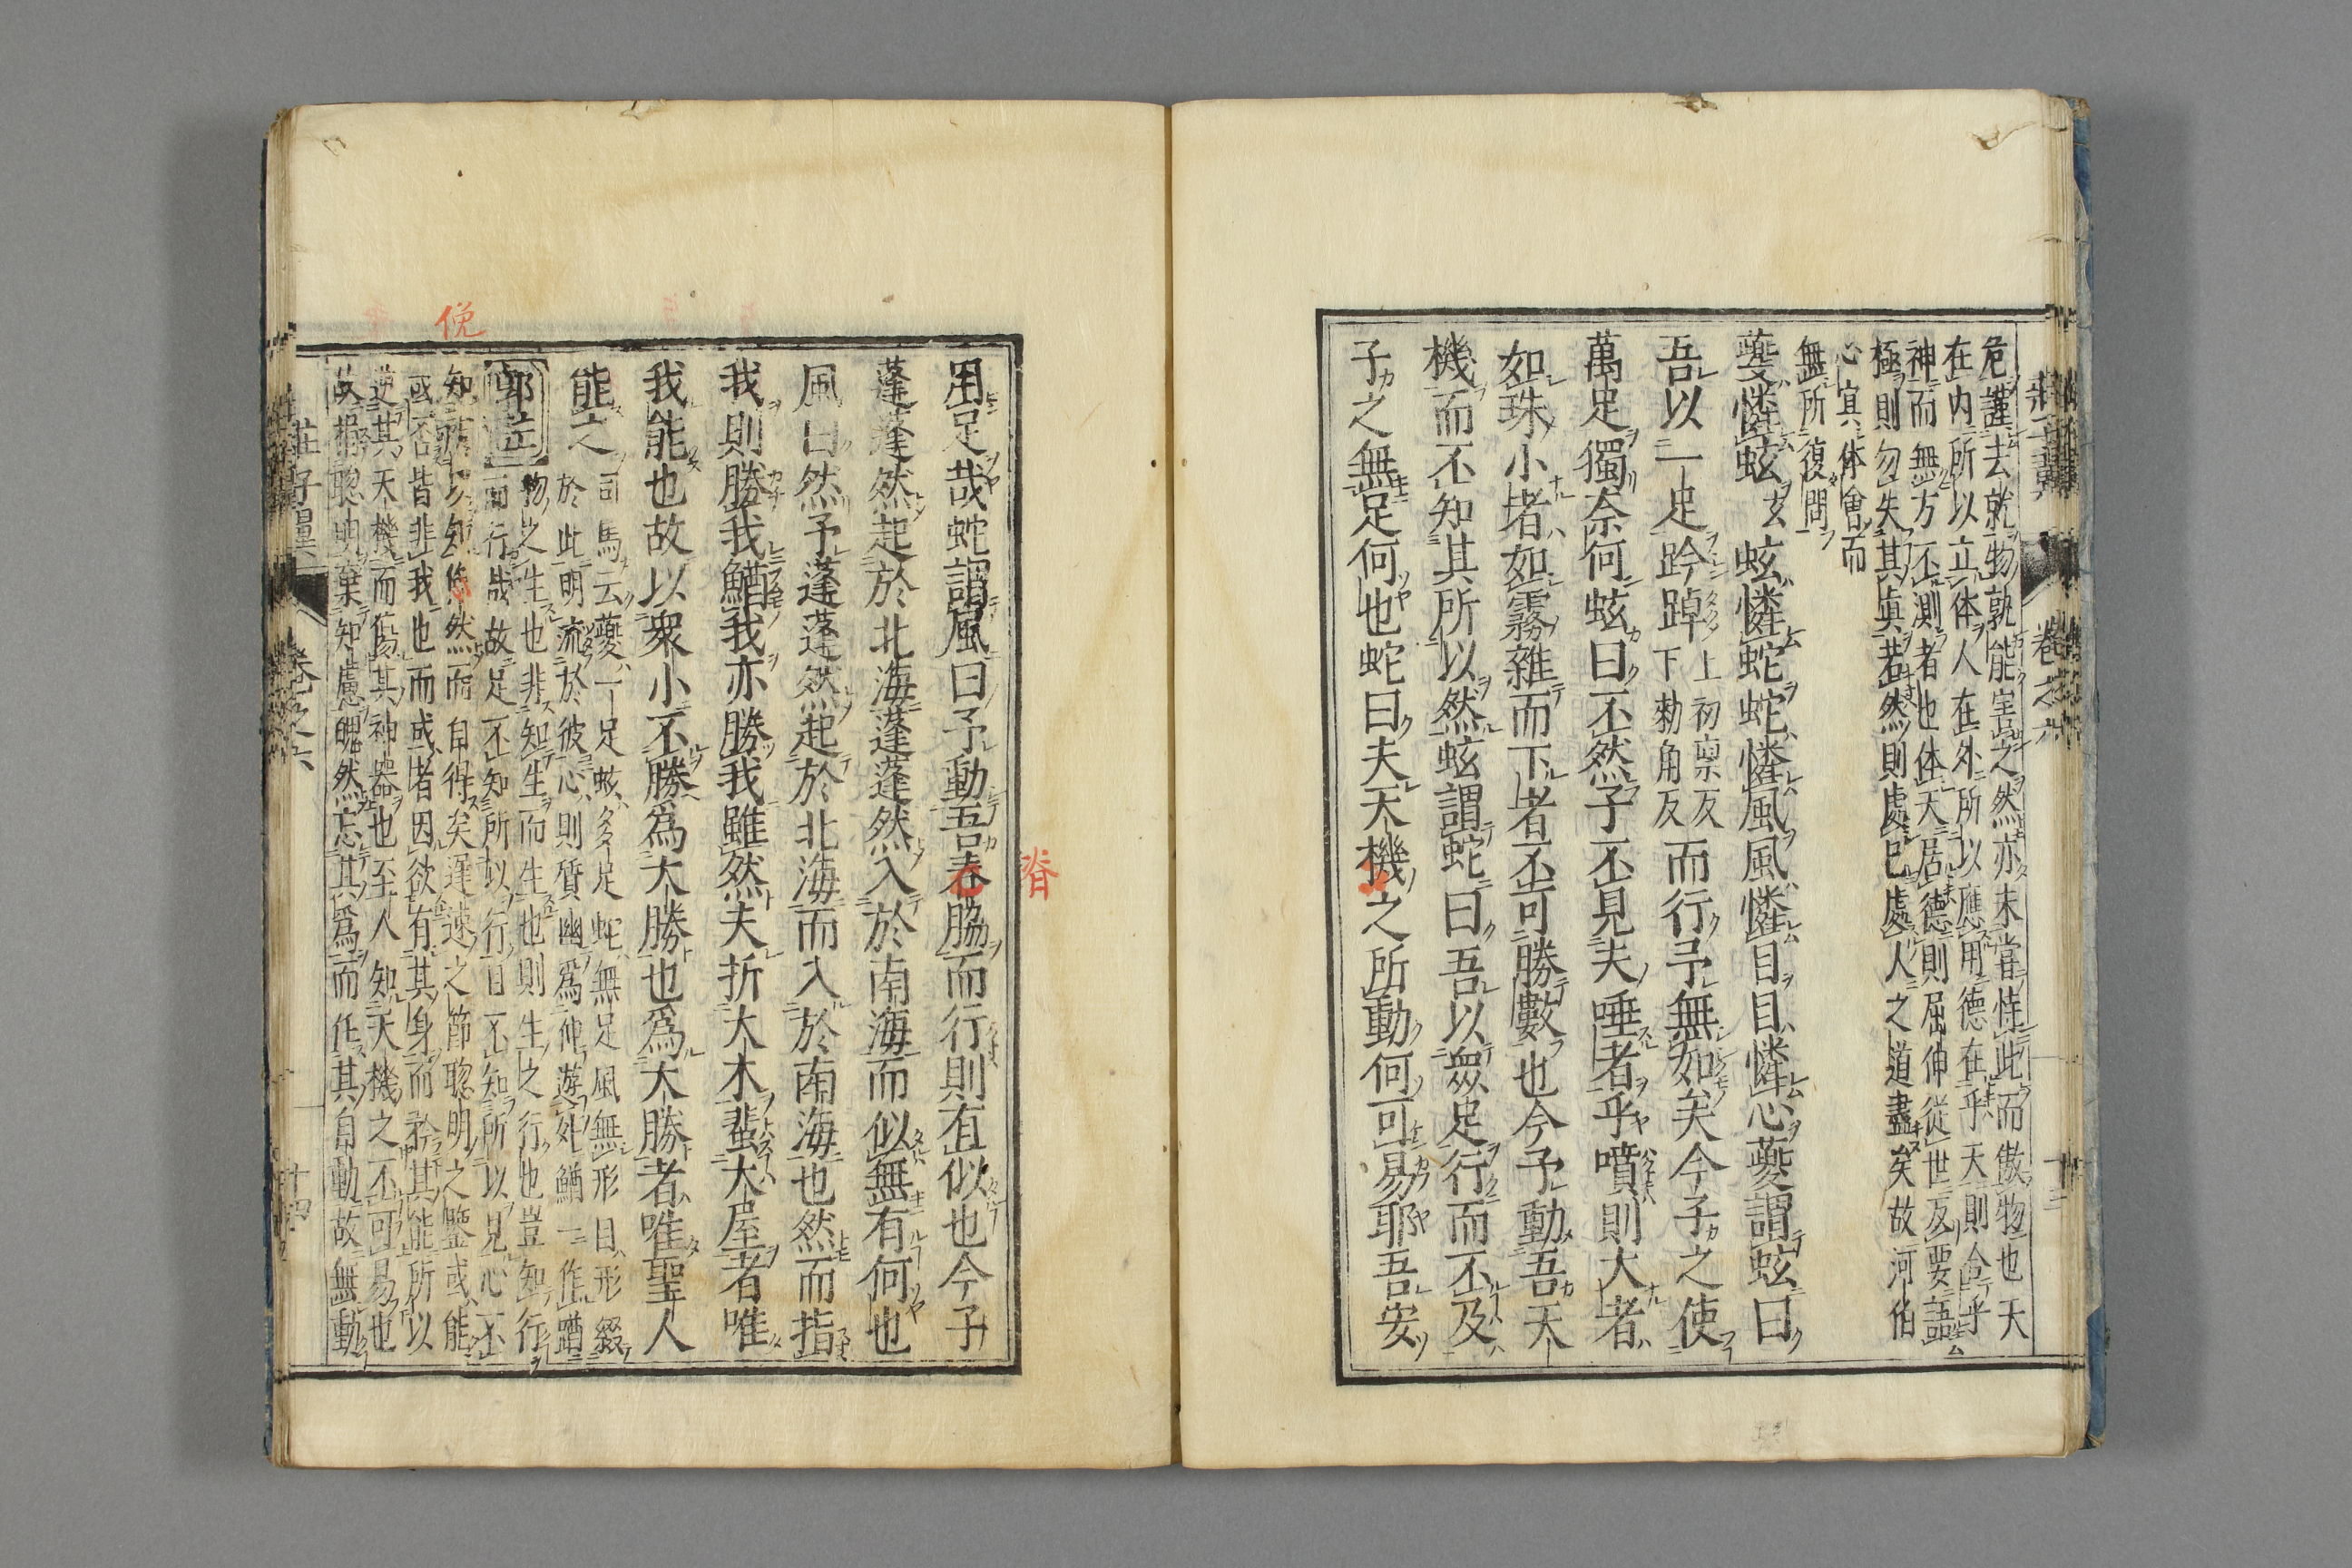 危謹去就物孰能害之然亦未嘗恃此而傲物也天
在內所以立体人在外所以應用德在乎天則合乎
神而無方不測者也体天居德則屈伸從世反要語
極則勿失其真若然則處已處人之道盡矣故河伯
心冥体會而
無所復問
夔憐蚿玄蚿憐蛇蛇憐風風憐目目憐心夔謂蚿曰
吾以一足趻踔上初稟反下勑角反而行予無如矣今子之使
萬足獨奈何蚿曰不然子不見夫唾者乎噴則大者
如珠小者如霧雜而下者不可勝數也今予動吾天
機而不知其所以然蚿謂蛇曰吾以衆足行而不及
子之無足何也蛇曰夫天機之所動何可易耶吾安
莊子翼
卷之六
十三
用足哉蛇謂風曰予動吾春脇而行則有似也今子
脊
蓬蓬然起於北海蓬蓬然入於南海而似無有何也
風曰然予蓬蓬然起於北海而入於南海也然而指
我則勝我鰌我亦勝我雖然夫折大木蜚大屋者唯
我能也故以衆小不勝爲大勝也爲大勝者唯聖人
能之
司馬云夔一足蚿多足蛇無足風無形目形綴
於此明流於彼心則質幽爲神遊外鰌一作蹲
郭註
物之生也非知生而生也則生之行也豈知行
而行哉故足不知所以行目不知所以見心不
知所以知俛然而自得矣遲速之節聰明之鑒或能
俛
或否皆非我也而或者因欲有其身而矜其能所以
逆其天機而傷其神器也至人知天機之不可易也
故捐聰明棄知慮魄然忘其爲而任其自動故無動
莊子翼
卷之六
十四